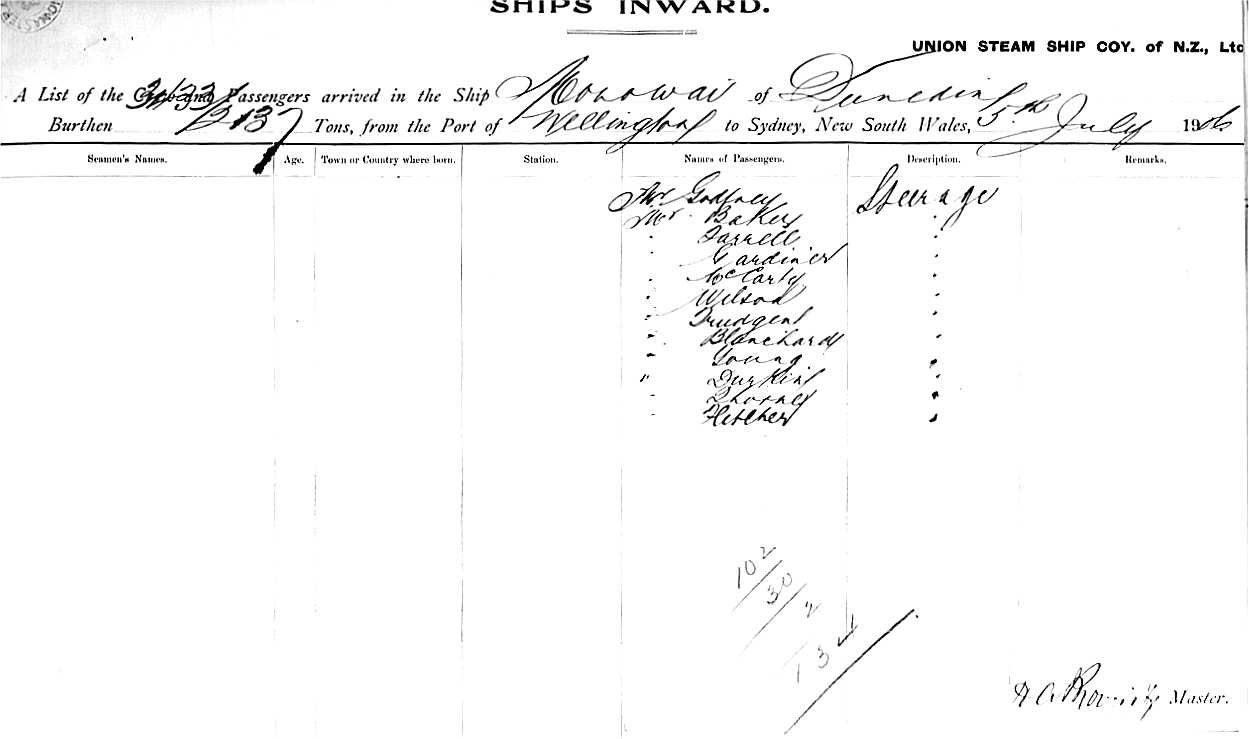 SHIPS INWARD.
UNION STEAM SHIP COY. of N.Z., Ltd
A List of the Crew and Passengers arrived in the Ship Monowai of Dunedin
Burthen 2137 Tons, from the Port of Wellington to Sydney, New South Wales, 5th July 1906
Seamen's Names. Age. Town or Country where born. Station. Names of Passengers. Description. Remarks.
Mr Godfrey Steerage
Mr Baker "
" Farrell "
" Gardiner "
" McCarty "
" Wilson "
" Trudgent "
" Blanchard "
" Young "
" Durkin "
" Thorne "
" Fletcher "
102
30
2
134
Master.